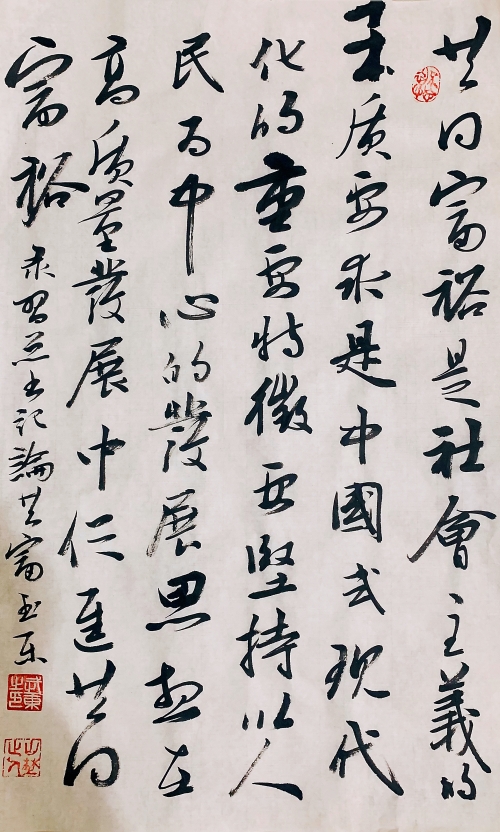 共同富裕是社會主義的
本质要求是中國式现代
化的重要特徵要堅持以人
民为中心的發展思想在
高质量發展中促進共同
富裕 录習总书记論共富